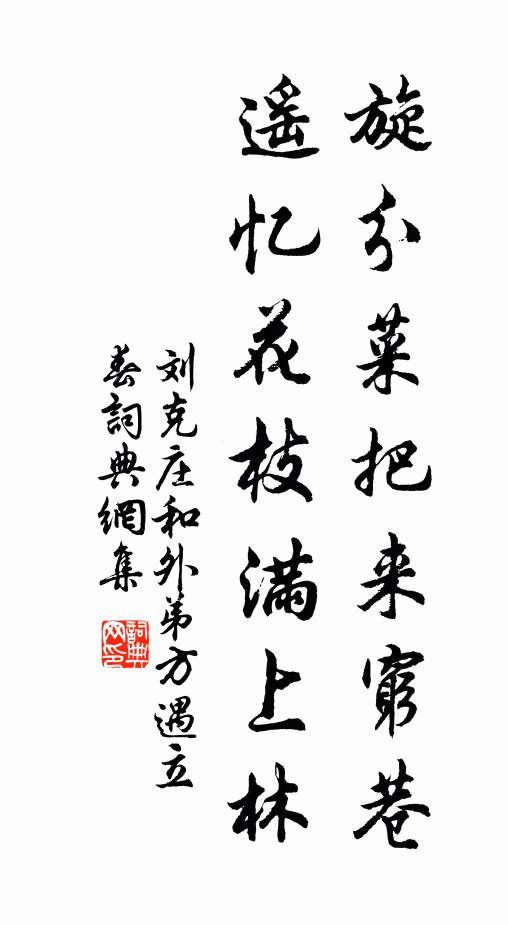 旋分菜把来穷巷
遥忆花枝满上林
刘克庄和外弟方遇立
春詞典網集
詞典网印